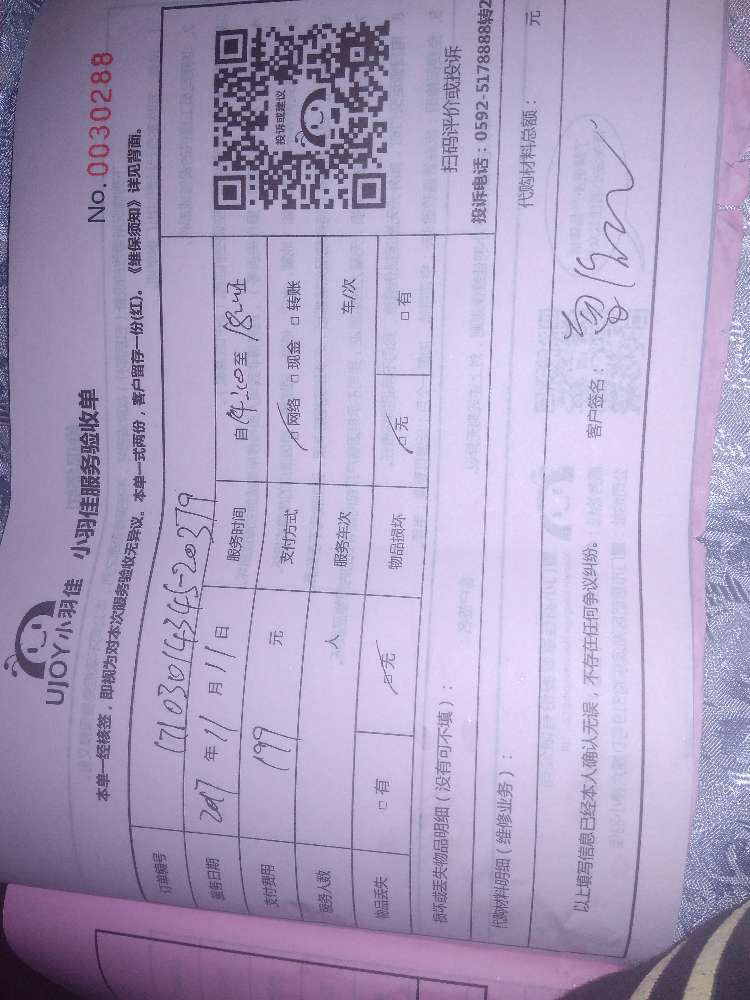 UJOY小羽佳 小羽佳服务验收单
No. 0030288
本单一经核签，即视为对本次服务验收无异议。本单一式两份，客户留存一份(红)。《维保须知》详见背面。
订单编号 17103014345-20379
服务日期 2017 年 11 月 11 日 服务时间 自 14:00 至
支付费用 199 元 支付方式 网络 □ 现金 □ 转账
服务人数 人 服务车次 车/次
物品丢失 □ 有 无 物品损坏 无 □ 有
投诉或建议
扫码评价或投诉
投诉电话：0592-5178888转2
损坏或丢失物品明细（没有可不填）：
代购材料明细（维修业务）： 代购材料总额： 元
以上填写信息已经本人确认无误，不存在任何争议纠纷。 客户签名：